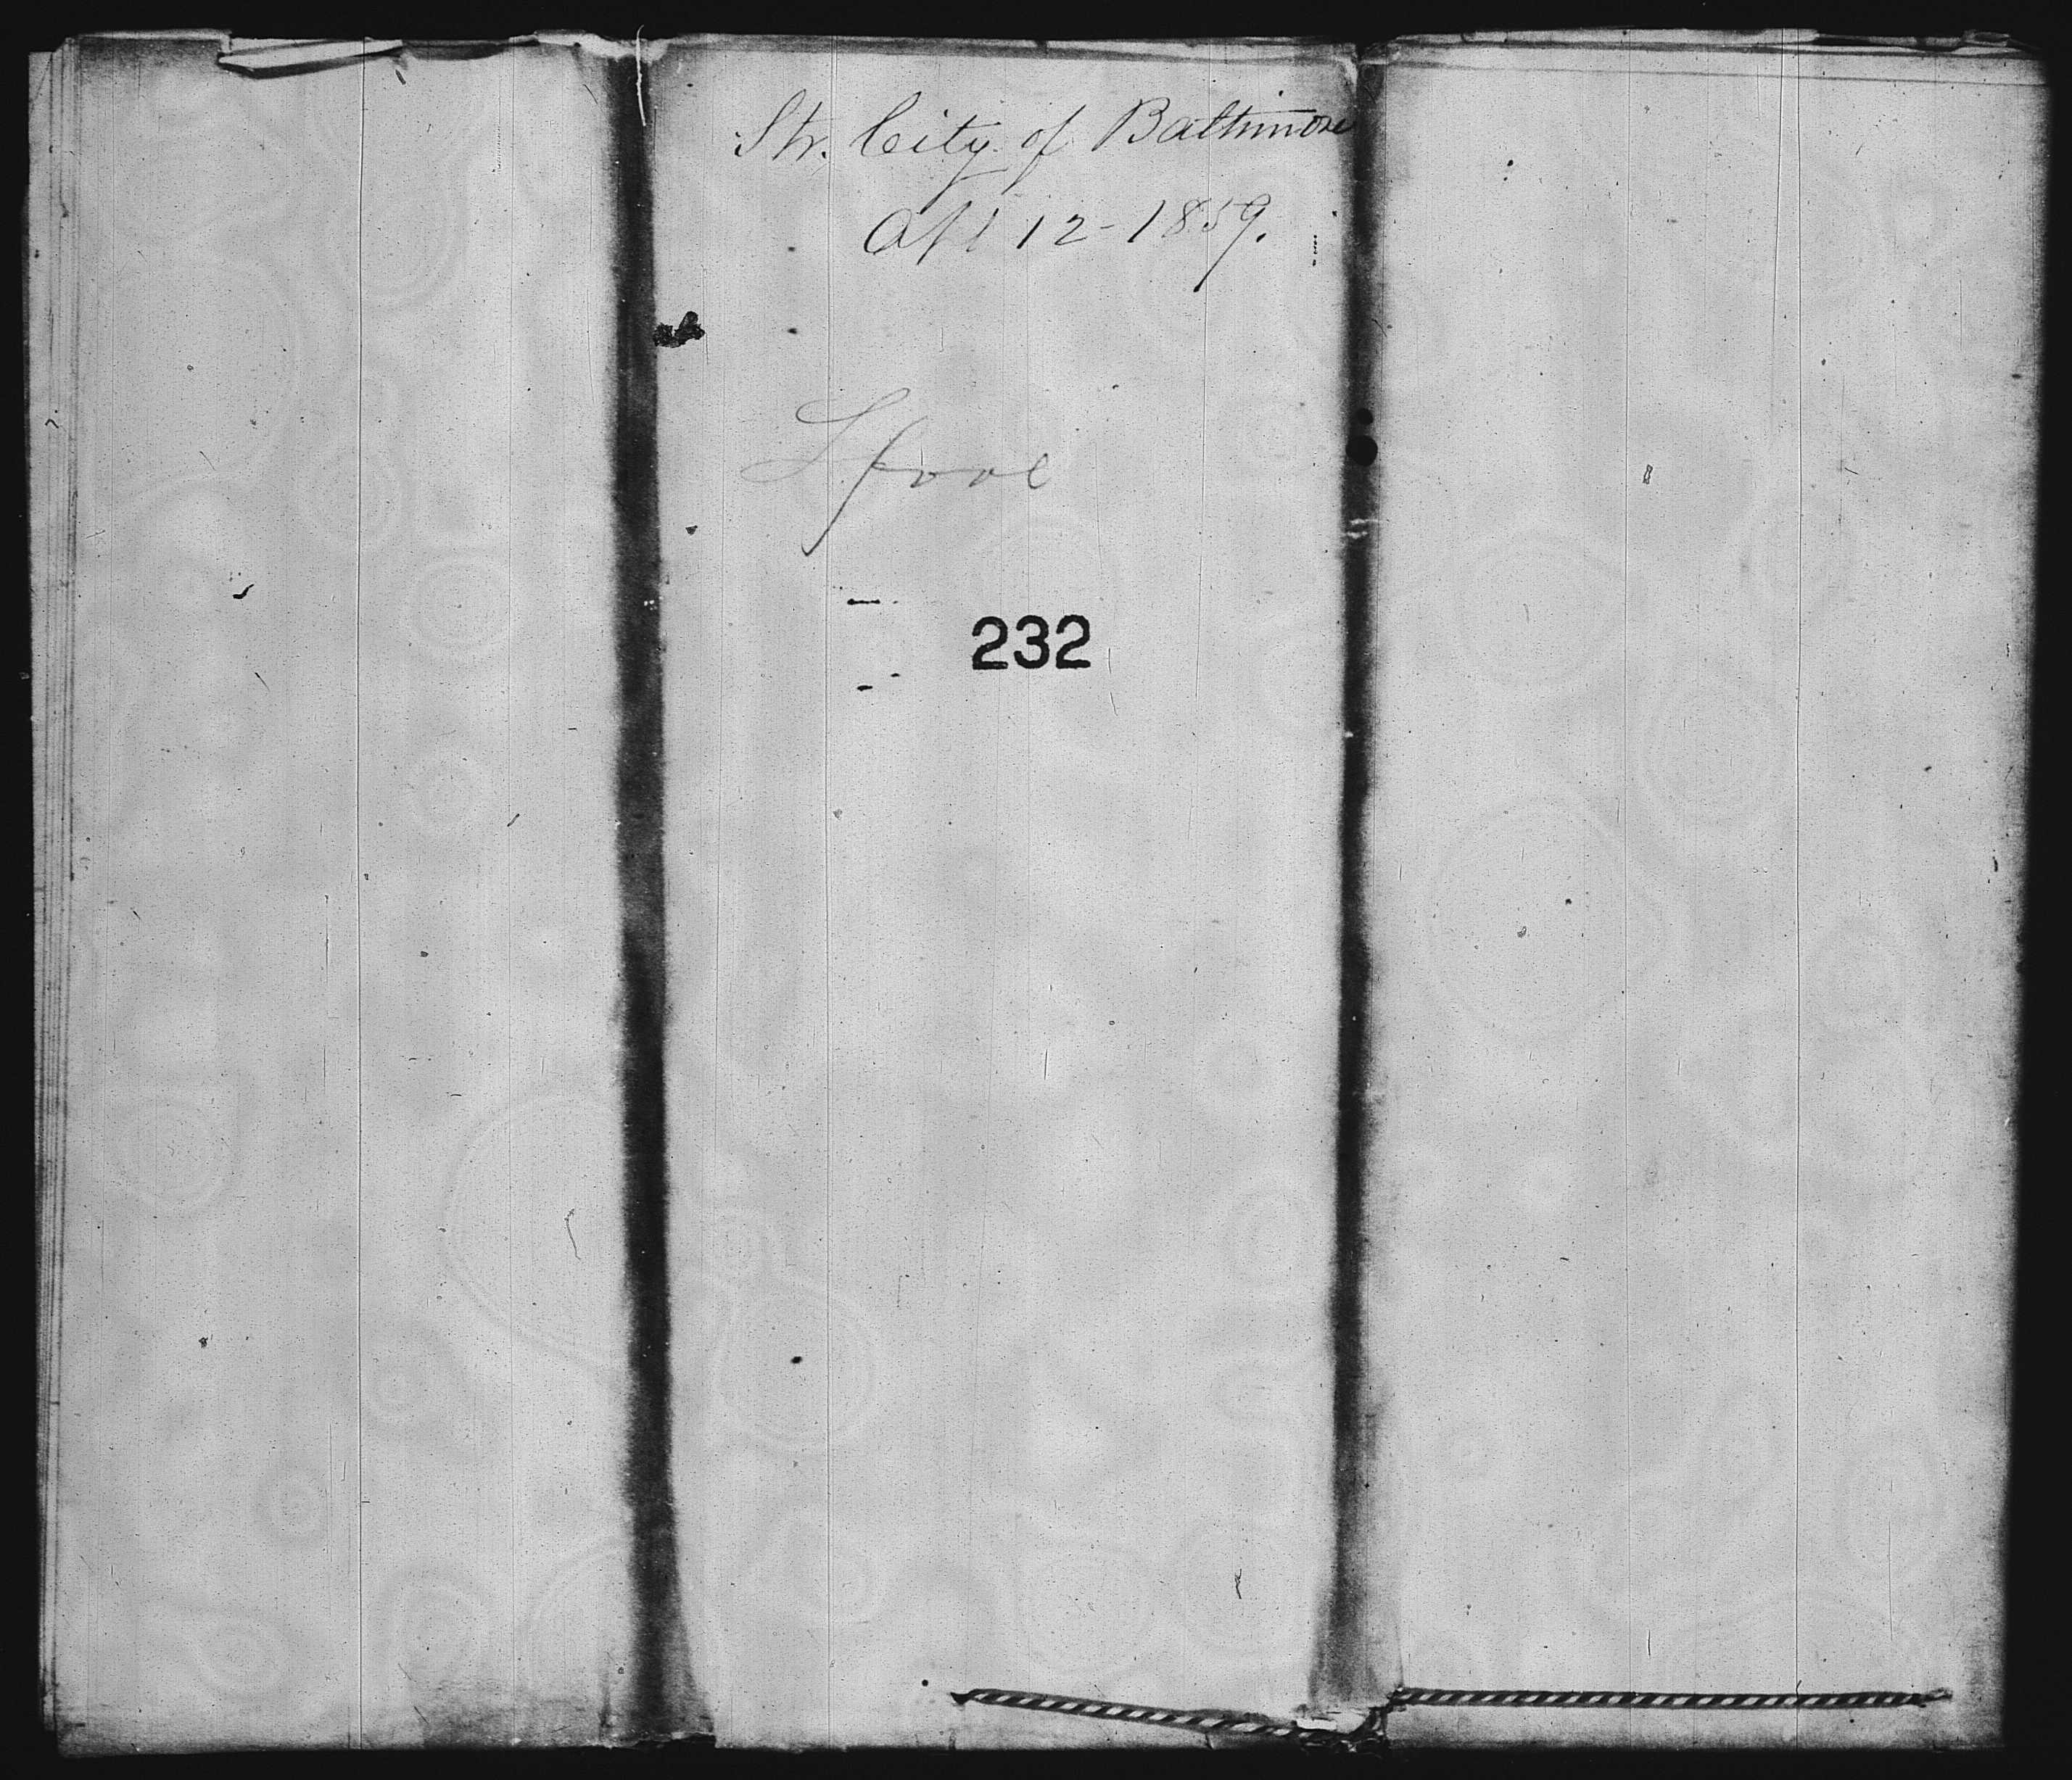 Str. City of Baltimore
Apl 12-1859.
Lpool
232